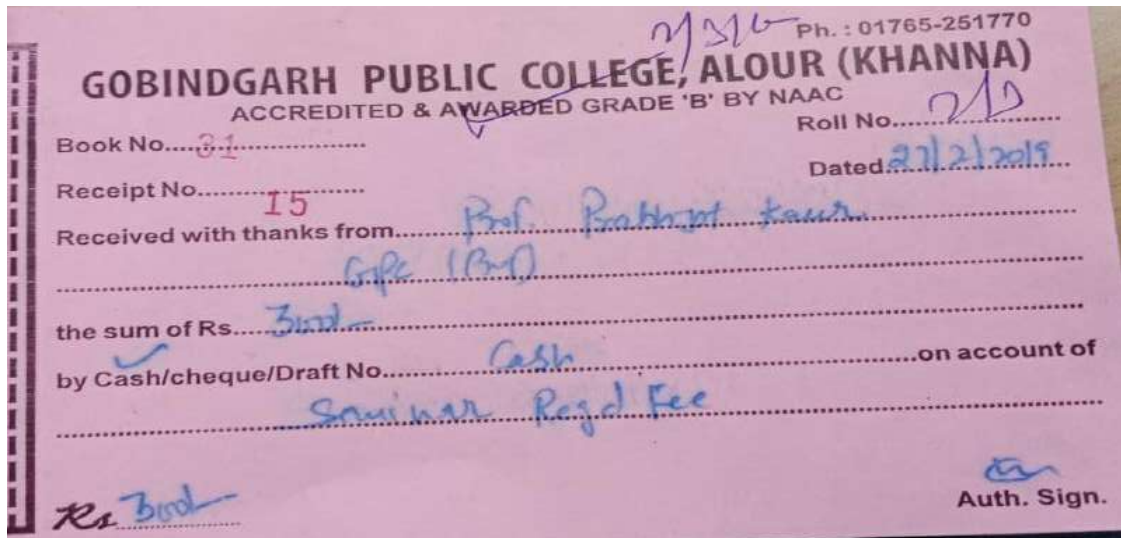 Ph. : 01765-251770
GOBINDGARH PUBLIC COLLEGE, ALOUR (KHANNA)
ACCREDITED & AWARDED GRADE 'B' BY NAAC
Book No....31.................... Roll No.....................
Receipt No....15.................... Dated 27/2/2019
Received with thanks from.......Prof. Prabhjot Kaur.......
GPC
the sum of Rs.....................
by Cash/cheque/Draft No.......Cash.......on account of
Seminar Regd Fee
Rs
Auth. Sign.